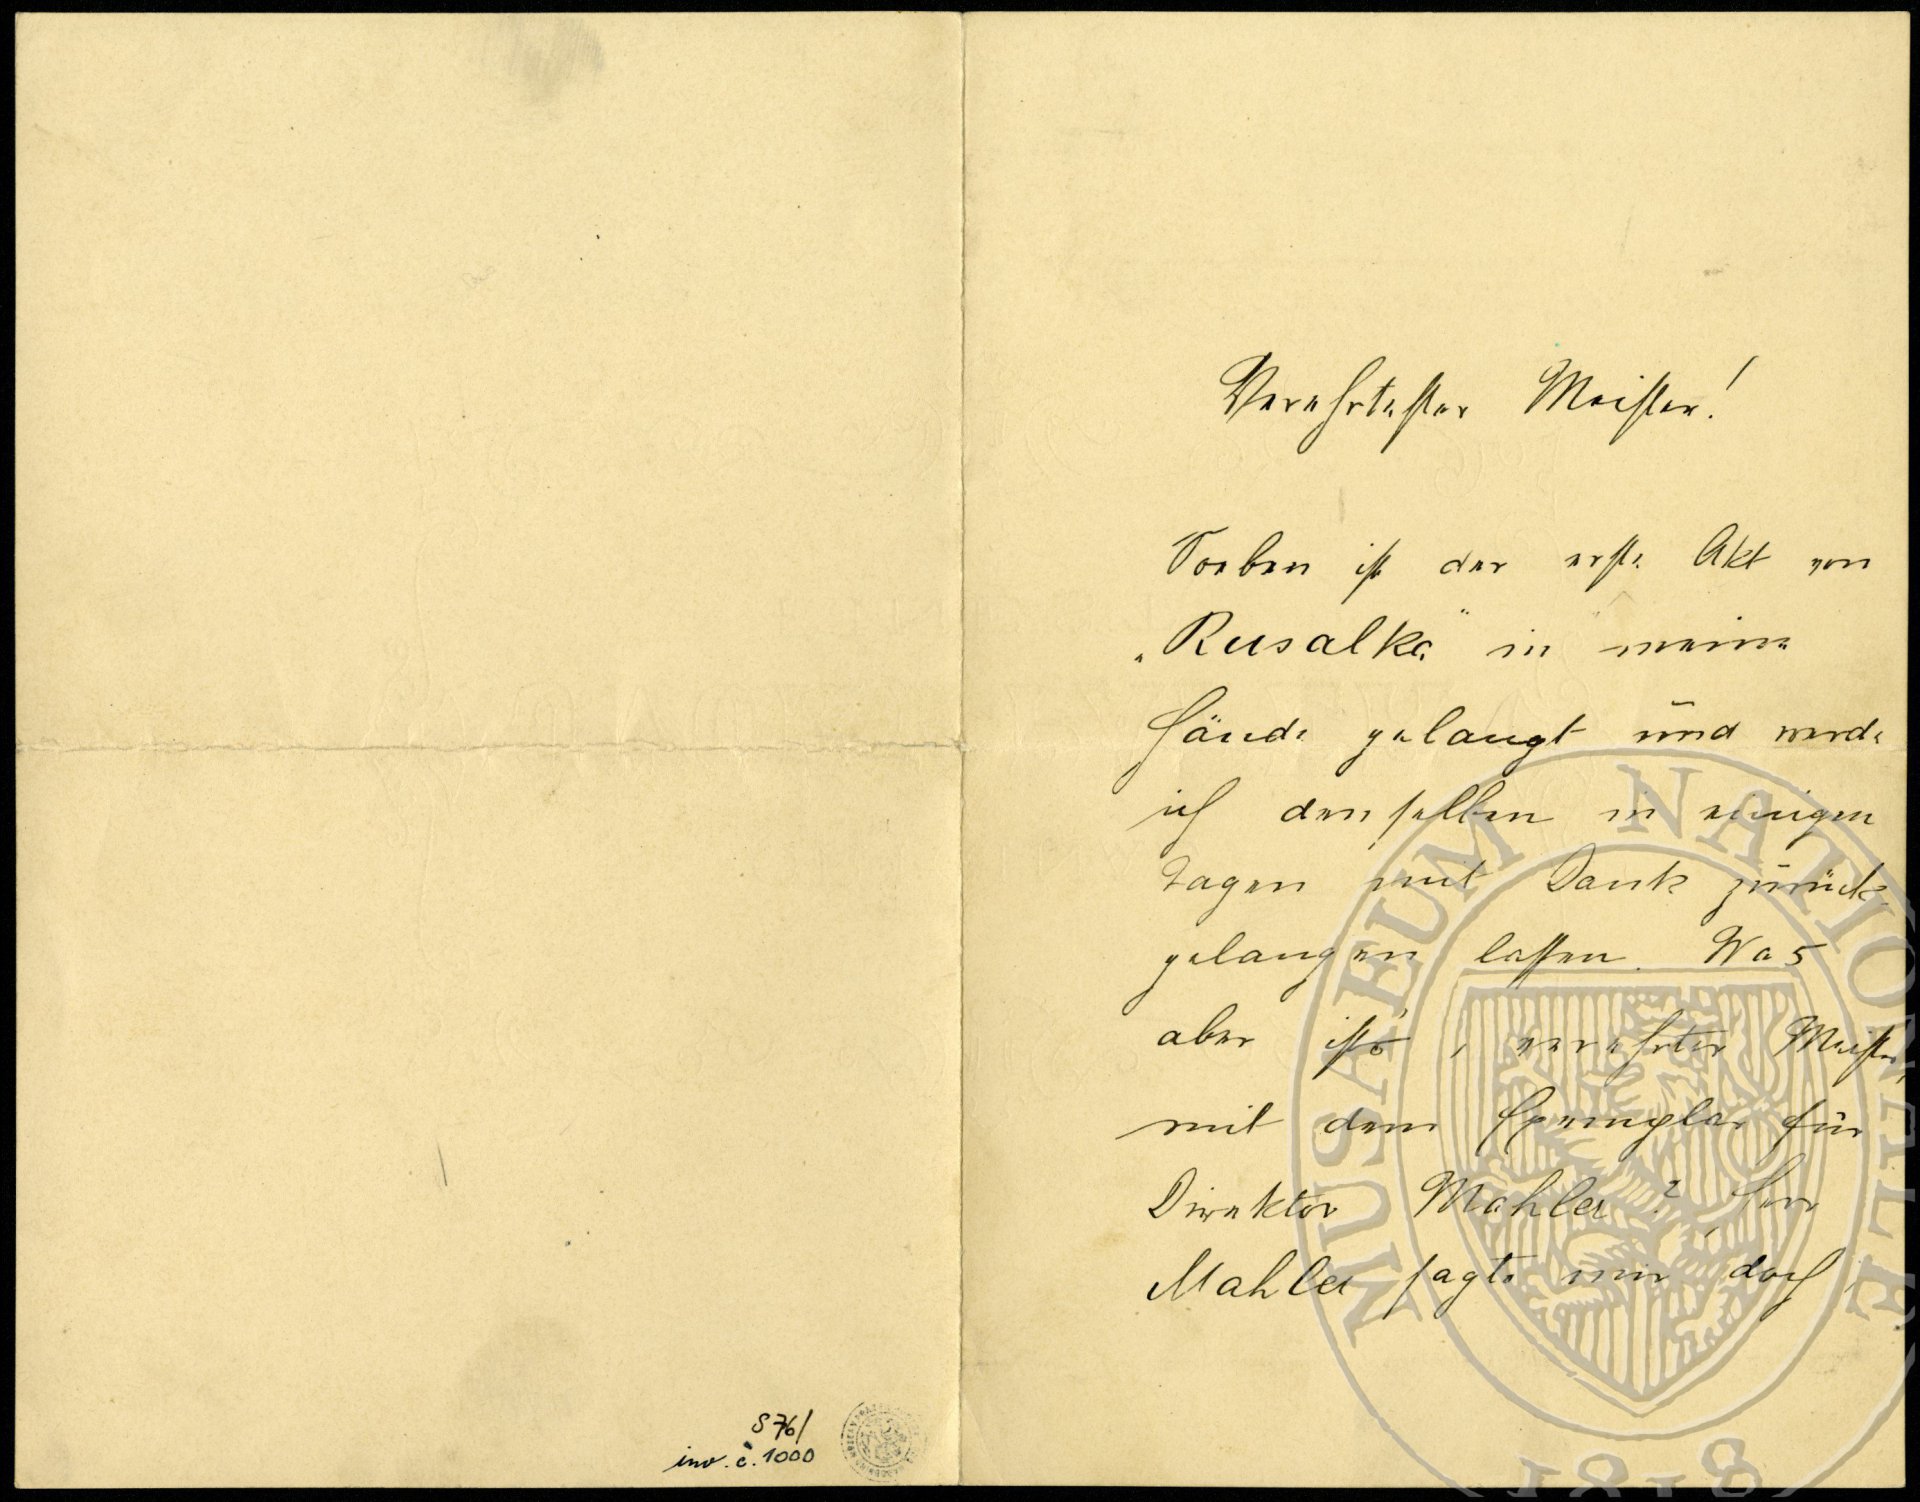 S 76/
inv. č. 1000
Verehrtester Meister!
Soeben ist der erste Akt von
„Rusalka" in meine
Hände gelangt und werde
ich denselben in einigen
Tagen mit Dank zurück
gelangen lassen. Was
aber ist's, verehrter Meister,
mit dem Exemplar für
Direktor Mahler? Herr
Mahler sagte mir doch,
MUSAEUM NATIONALE
1818